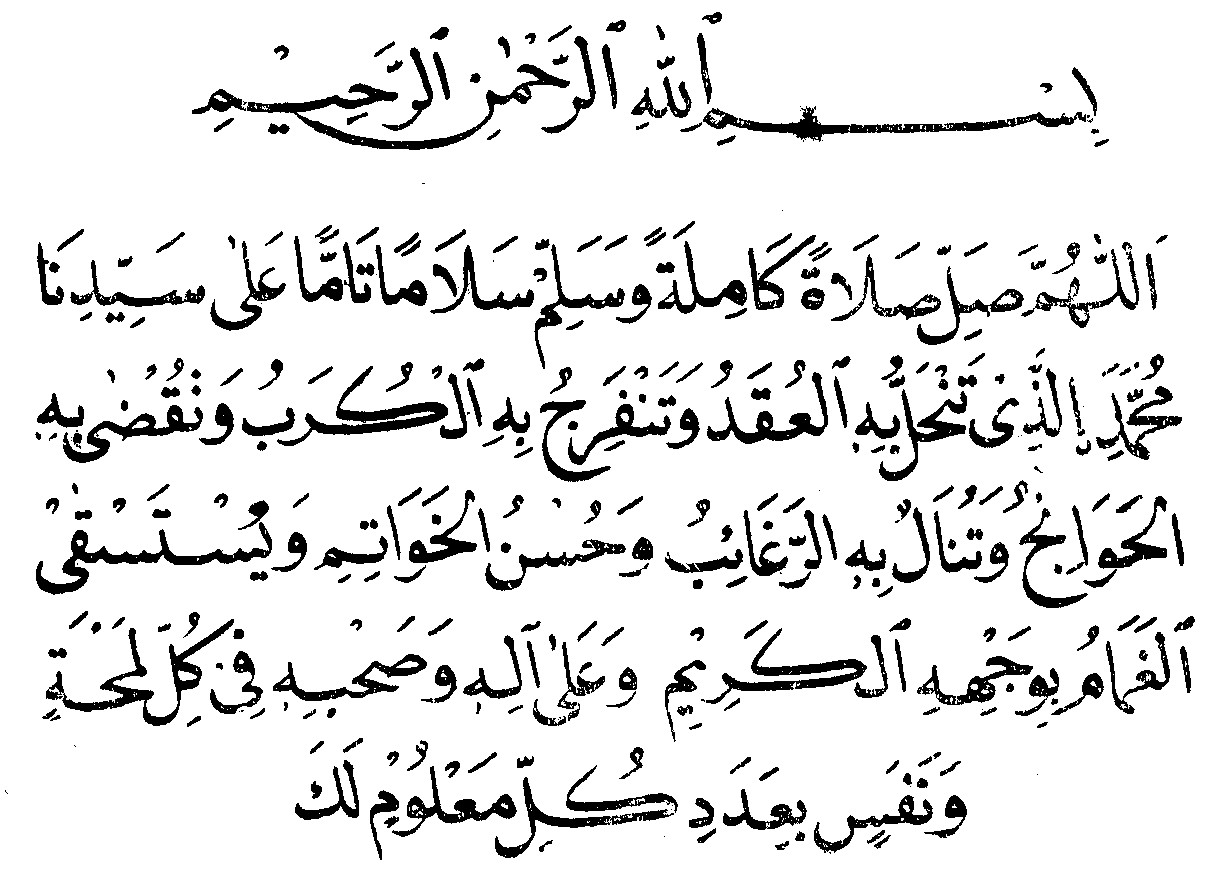 بِسْمِ ٱللَّهِ ٱلرَّحْمٰنِ ٱلرَّحِيْمِ
اَللّٰهُمَّ صَلِّ صَلَاةً كَامِلَةً وَسَلِّمْ سَلَامًا تَامًّا عَلٰى سَيِّدِنَا
مُحَمَّدِ إِلَّذِىْ تَنْحَلُّ بِهِ ٱلْعُقَدُ وَتَنْفَرِجُ بِهِ ٱلْكُرَبُ وَتُقْضٰى بِهِ
الْحَوَائِجُ وَتُنَالُ بِهِ الرَّغَائِبُ وَحُسْنُ الْخَوَاتِمِ وَيُسْتَسْقٰى
ٱلْغَمَامُ بِوَجْهِهِ ٱلْكَرِيْمِ وَعَلٰى آلِهِ وَصَحْبِهِ فِىْ كُلِّ لَمْحَةٍ
وَنَفَسٍ بِعَدَدِ كُلِّ مَعْلُوْمٍ لَكَ